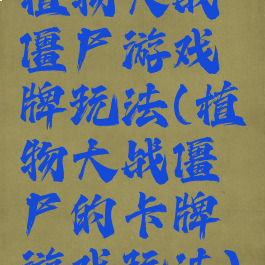 植物大战
僵尸游戏
牌玩法(植
物大战僵
尸的卡牌
游戏玩法)